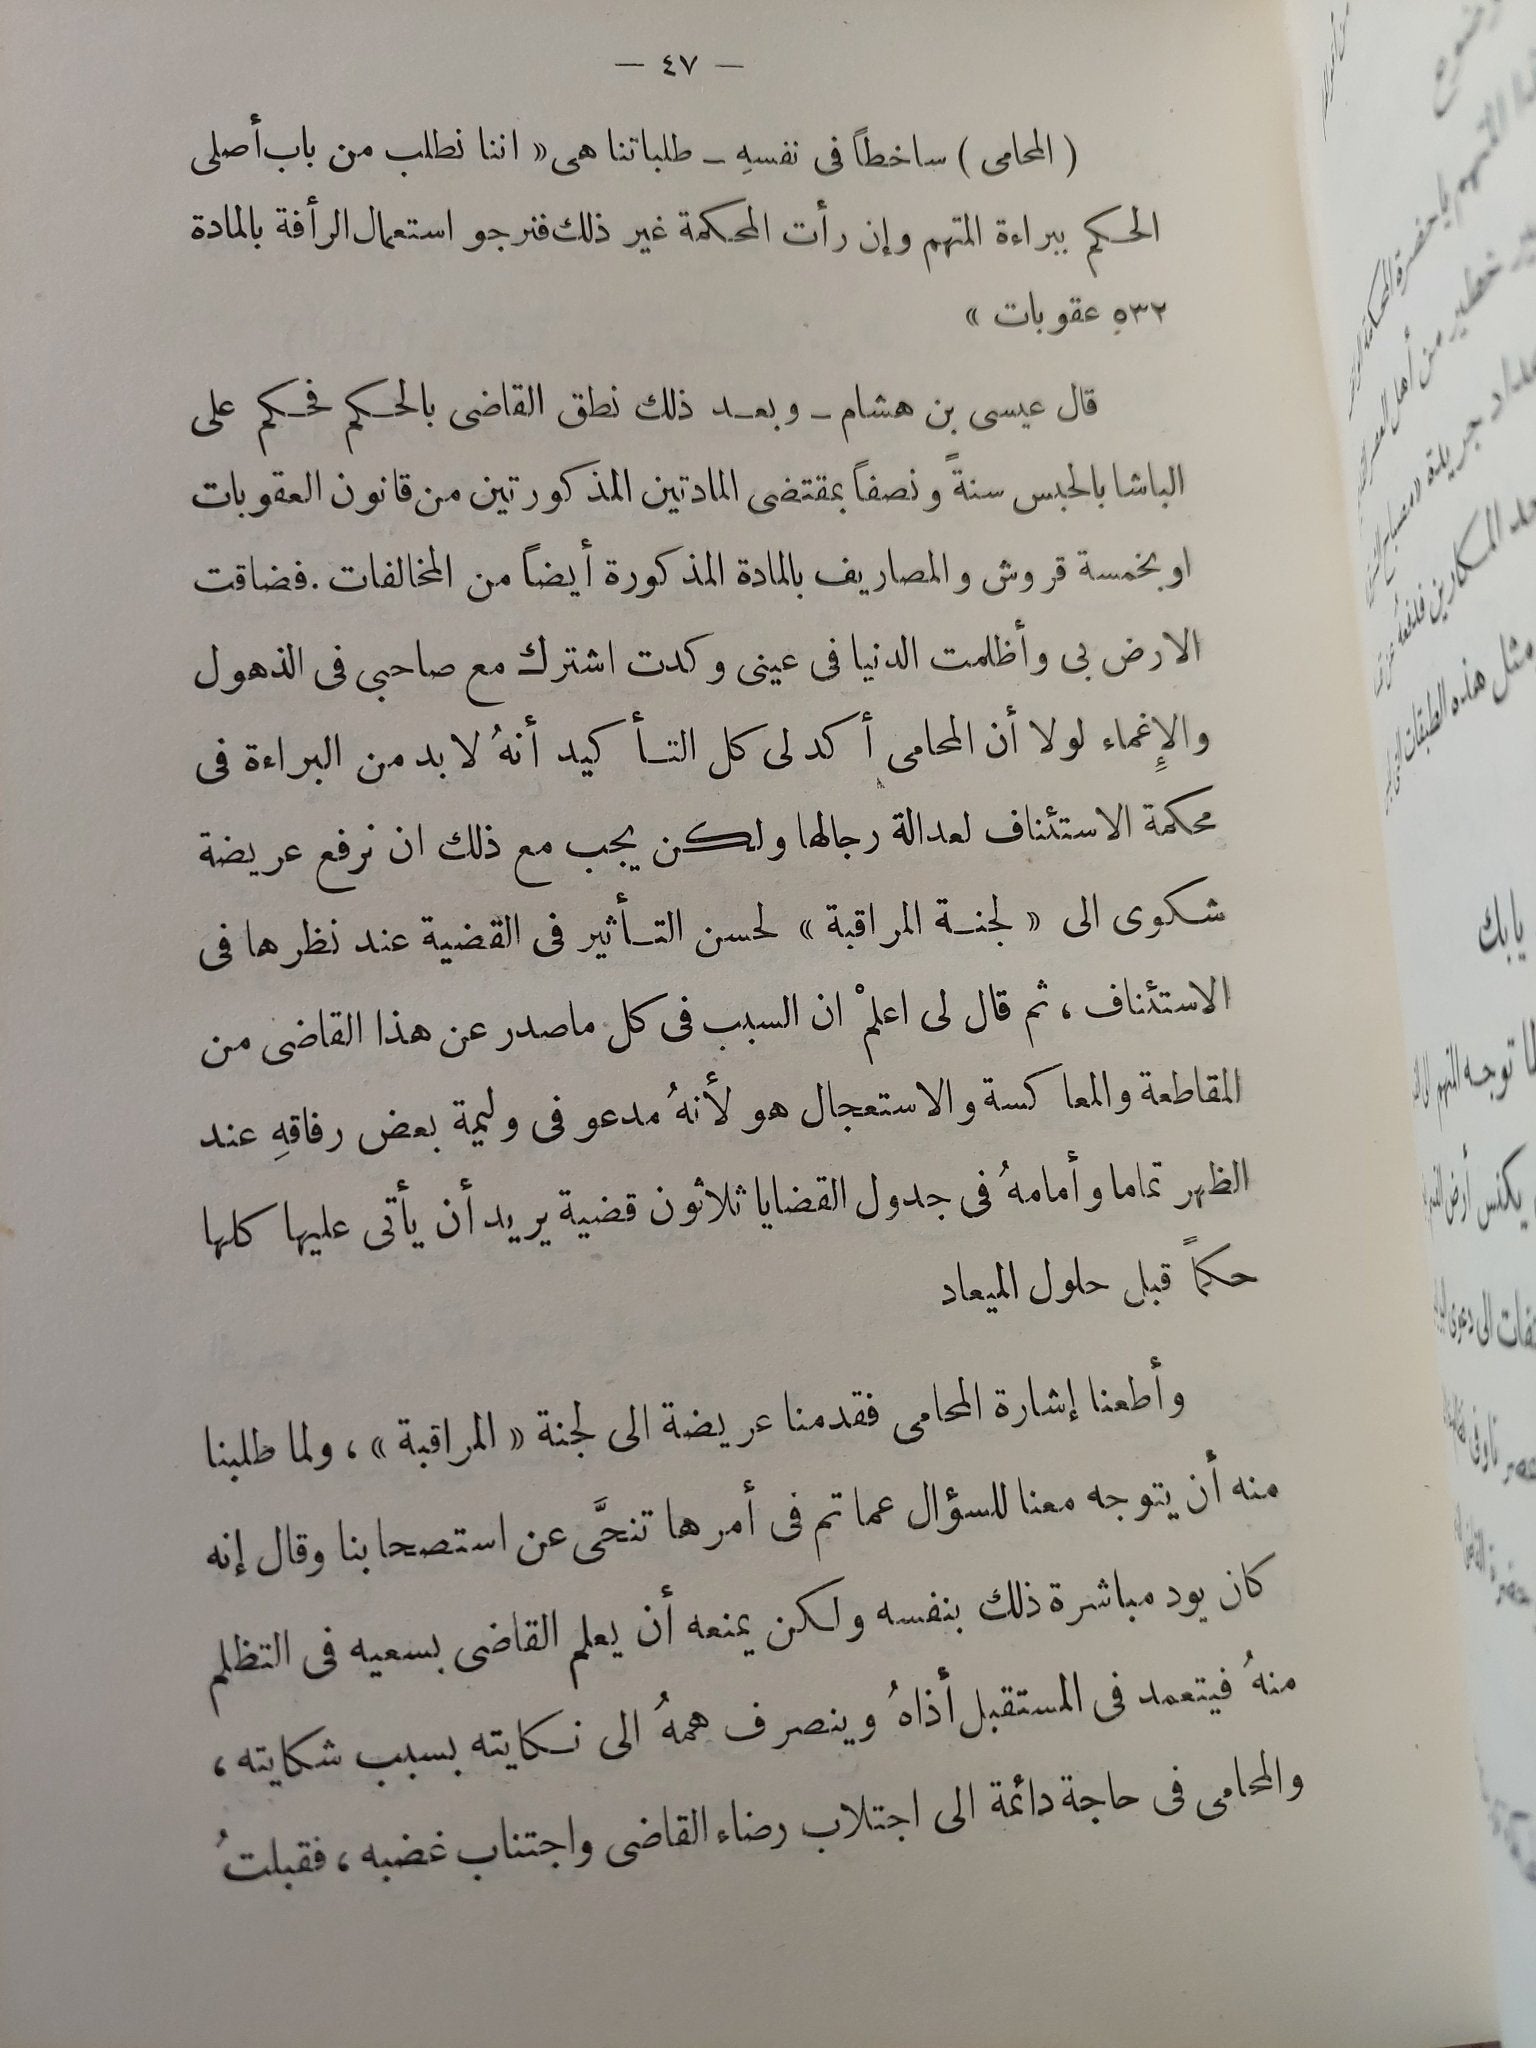 — ٤٧ —
( المحامى ) ساخطاً فى نفسهِ ــ طلباتنا هى « اننا نطلب من باب أصلى
الحكم ببراءة المتهم وإن رأت المحكمة غير ذلك فنرجو استعمال الرأفة بالمادة
٥٣٢ عقوبات »
قال عيسى بن هشام ــ وبعد ذلك نطق القاضى بالحكم فحكم على
الباشا بالحبس سنةً ونصفاً بمقتضى المادتين المذكورتين من قانون العقوبات
او بخمسة قروش والمصاريف بالمادة المذكورة أيضاً من المخالفات . فضاقت
الارض بى وأظلمت الدنيا فى عينى وكدت اشترك مع صاحبى فى الذهول
والإغماء لولا أن المحامى أكد لى كل التأكيد أنهُ لا بد من البراءة فى
محكمة الاستئناف لعدالة رجالها ولكن يجب مع ذلك ان نرفع عريضة
شكوى الى « لجنة المراقبة » لحسن التأثير فى القضية عند نظرها فى
الاستئناف ، ثم قال لى اعلمْ ان السبب فى كل ماصدر عن هذا القاضى من
المقاطعة والمعاكسة والاستعجال هو لأنهُ مدعو فى وليمة بعض رفاقهِ عند
الظهر تماما وأمامهُ فى جدول القضايا ثلاثون قضية يريد أن يأتى عليها كلها
حكماً قبل حلول الميعاد
وأطعنا إشارة المحامى فقدمنا عريضة الى لجنة « المراقبة » ، ولما طلبنا
منه أن يتوجه معنا للسؤال عما تم فى أمرها تنحَّى عن استصحابنا وقال إنه
كان يود مباشرة ذلك بنفسه ولكن يمنعه أن يعلم القاضى بسعيه فى التظلم
منهُ فيتعمد فى المستقبل أذاهُ وينصرف همهُ الى نكايته بسبب شكايته ،
والمحامى فى حاجة دائمة الى اجتلاب رضاء القاضى واجتناب غضبه ، فقبلتُ